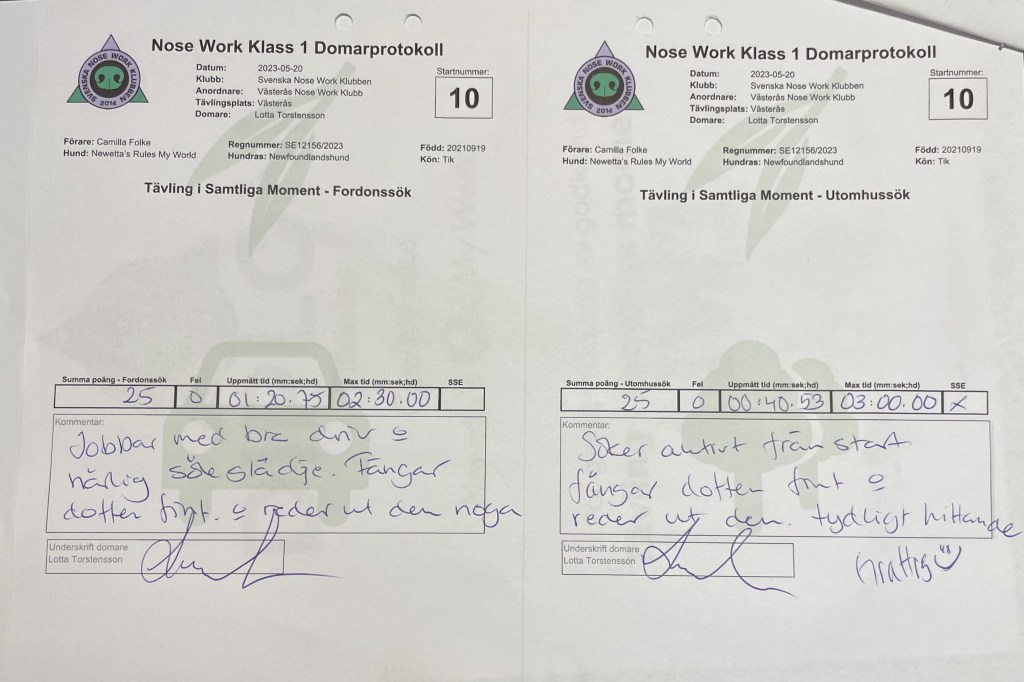 Nose Work Klass 1 Domarprotokoll
SVENSKA NOSE WORK KLUBBEN
2014
Datum: 2023-05-20
Klubb: Svenska Nose Work Klubben
Anordnare: Västerås Nose Work Klubb
Tävlingsplats: Västerås
Domare: Lotta Torstensson
Startnummer:
10
Förare: Camilla Folke
Hund: Newetta's Rules My World
Regnummer: SE12156/2023
Hundras: Newfoundlandshund
Född: 20210919
Kön: Tik
Tävling i Samtliga Moment - Fordonssök
Summa poäng - Fordonssök Fel Uppmätt tid (mm:sek;hd) Max tid (mm:sek;hd) SSE
25 0 01:20.75 02:30.00
Kommentar:
Jobbar med bra driv o
härlig sökglädje. Fångar
dotten fint. o reder ut den noga
Underskrift domare
Lotta Torstensson
Nose Work Klass 1 Domarprotokoll
SVENSKA NOSE WORK KLUBBEN
2014
Datum: 2023-05-20
Klubb: Svenska Nose Work Klubben
Anordnare: Västerås Nose Work Klubb
Tävlingsplats: Västerås
Domare: Lotta Torstensson
Startnummer:
10
Förare: Camilla Folke
Hund: Newetta's Rules My World
Regnummer: SE12156/2023
Hundras: Newfoundlandshund
Född: 20210919
Kön: Tik
Tävling i Samtliga Moment - Utomhussök
Summa poäng - Utomhussök Fel Uppmätt tid (mm:sek;hd) Max tid (mm:sek;hd) SSE
25 0 00:40.53 03:00.00 X
Kommentar:
Söker aktivt från start
fångar dotten fint o
reder ut den. tydligt hittande
Underskrift domare
Lotta Torstensson
Grattis